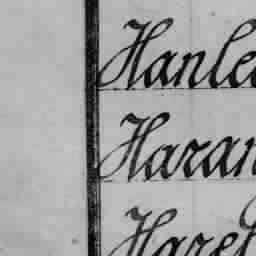 Hanle
Haran
Haret